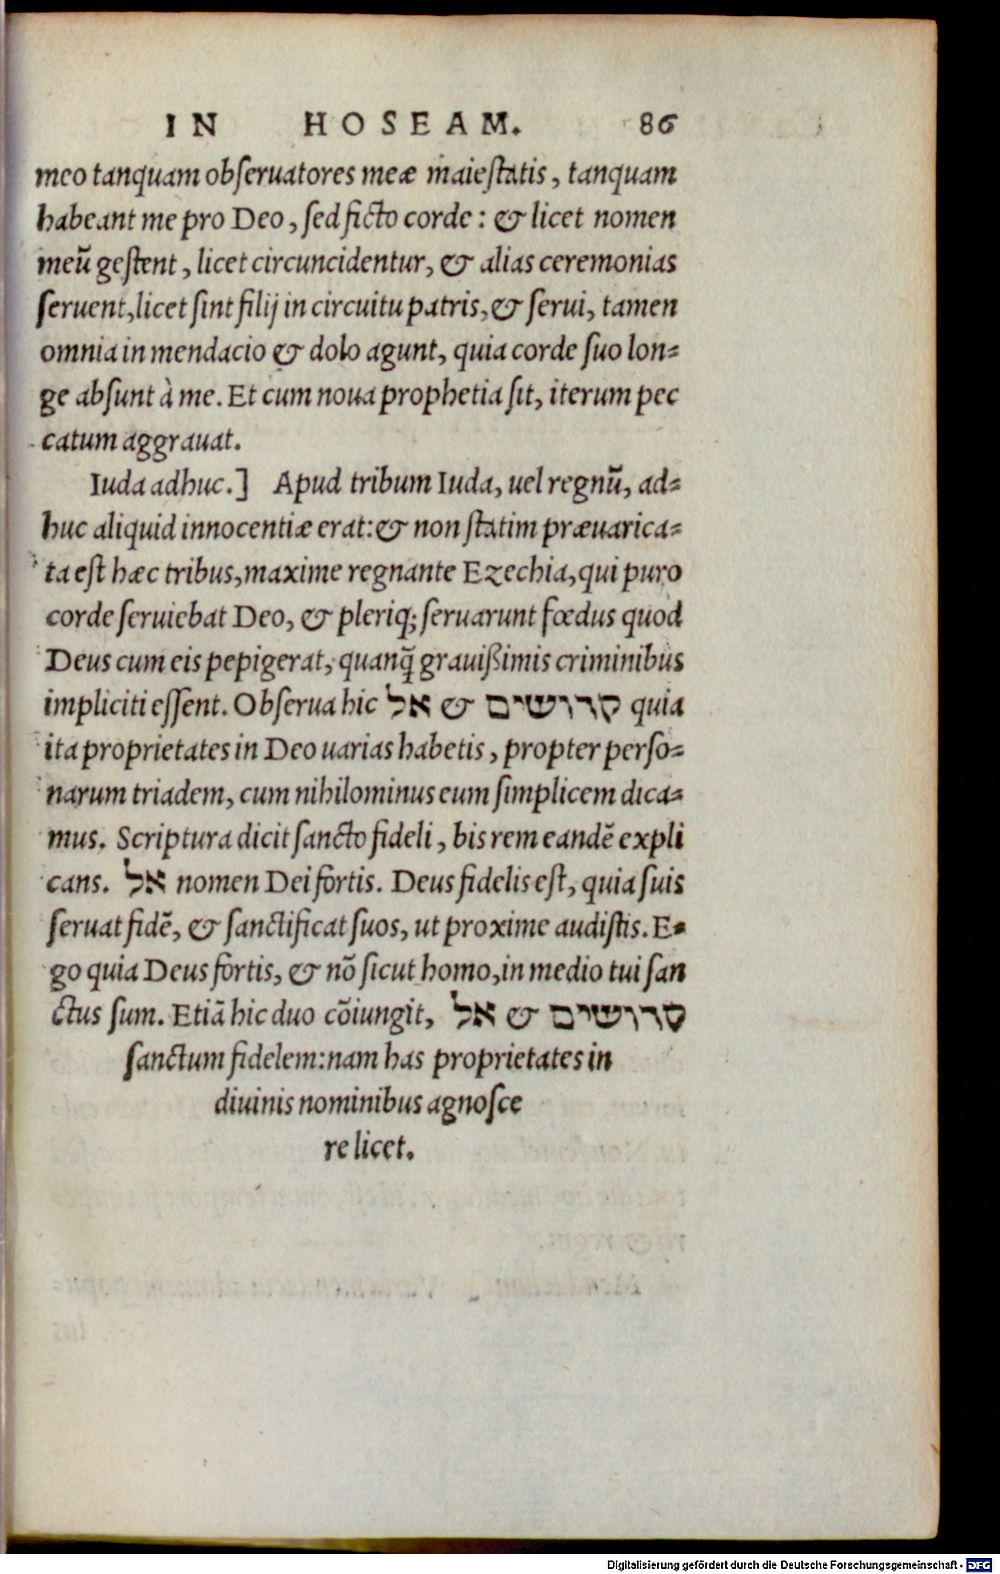 IN HOSEAM. 86
meo tanquam obseruatores meæ maiestatis, tanquam
habeant me pro Deo, sed ficto corde: & licet nomen
meũ gestent, licet circuncidentur, & alias ceremonias
seruent, licet sint filij in circuitu patris, & serui, tamen
omnia in mendacio & dolo agunt, quia corde suo lon=
ge absunt à me. Et cum noua prophetia sit, iterum pec
catum aggrauat.
Iuda adhuc.] Apud tribum Iuda, uel regnũ, ad=
huc aliquid innocentiæ erat: & non statim præuarica=
ta est hæc tribus, maxime regnante Ezechia, qui puro
corde seruiebat Deo, & pleriq; seruarunt fœdus quod
Deus cum eis pepigerat, quanq̃ grauißimis criminibus
impliciti essent. Obserua hic אל & קדושים quia
ita proprietates in Deo uarias habetis, propter perso=
narum triadem, cum nihilominus eum simplicem dica=
mus. Scriptura dicit sancto fideli, bis rem eandẽ expli
cans. אל nomen Dei fortis. Deus fidelis est, quia suis
seruat fidẽ, & sanctificat suos, ut proxime audistis. E=
go quia Deus fortis, & nõ sicut homo, in medio tui san
ctus sum. Etiã hic duo cõiungit, אל & קדושים
sanctum fidelem: nam has proprietates in
diuinis nominibus agnosce
re licet.
Digitalisierung gefördert durch die Deutsche Forschungsgemeinschaft - DFG